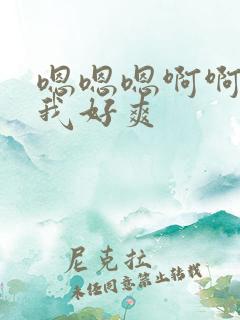 嗯嗯嗯啊啊
我好爽
尼克拉
未经同意禁止转载